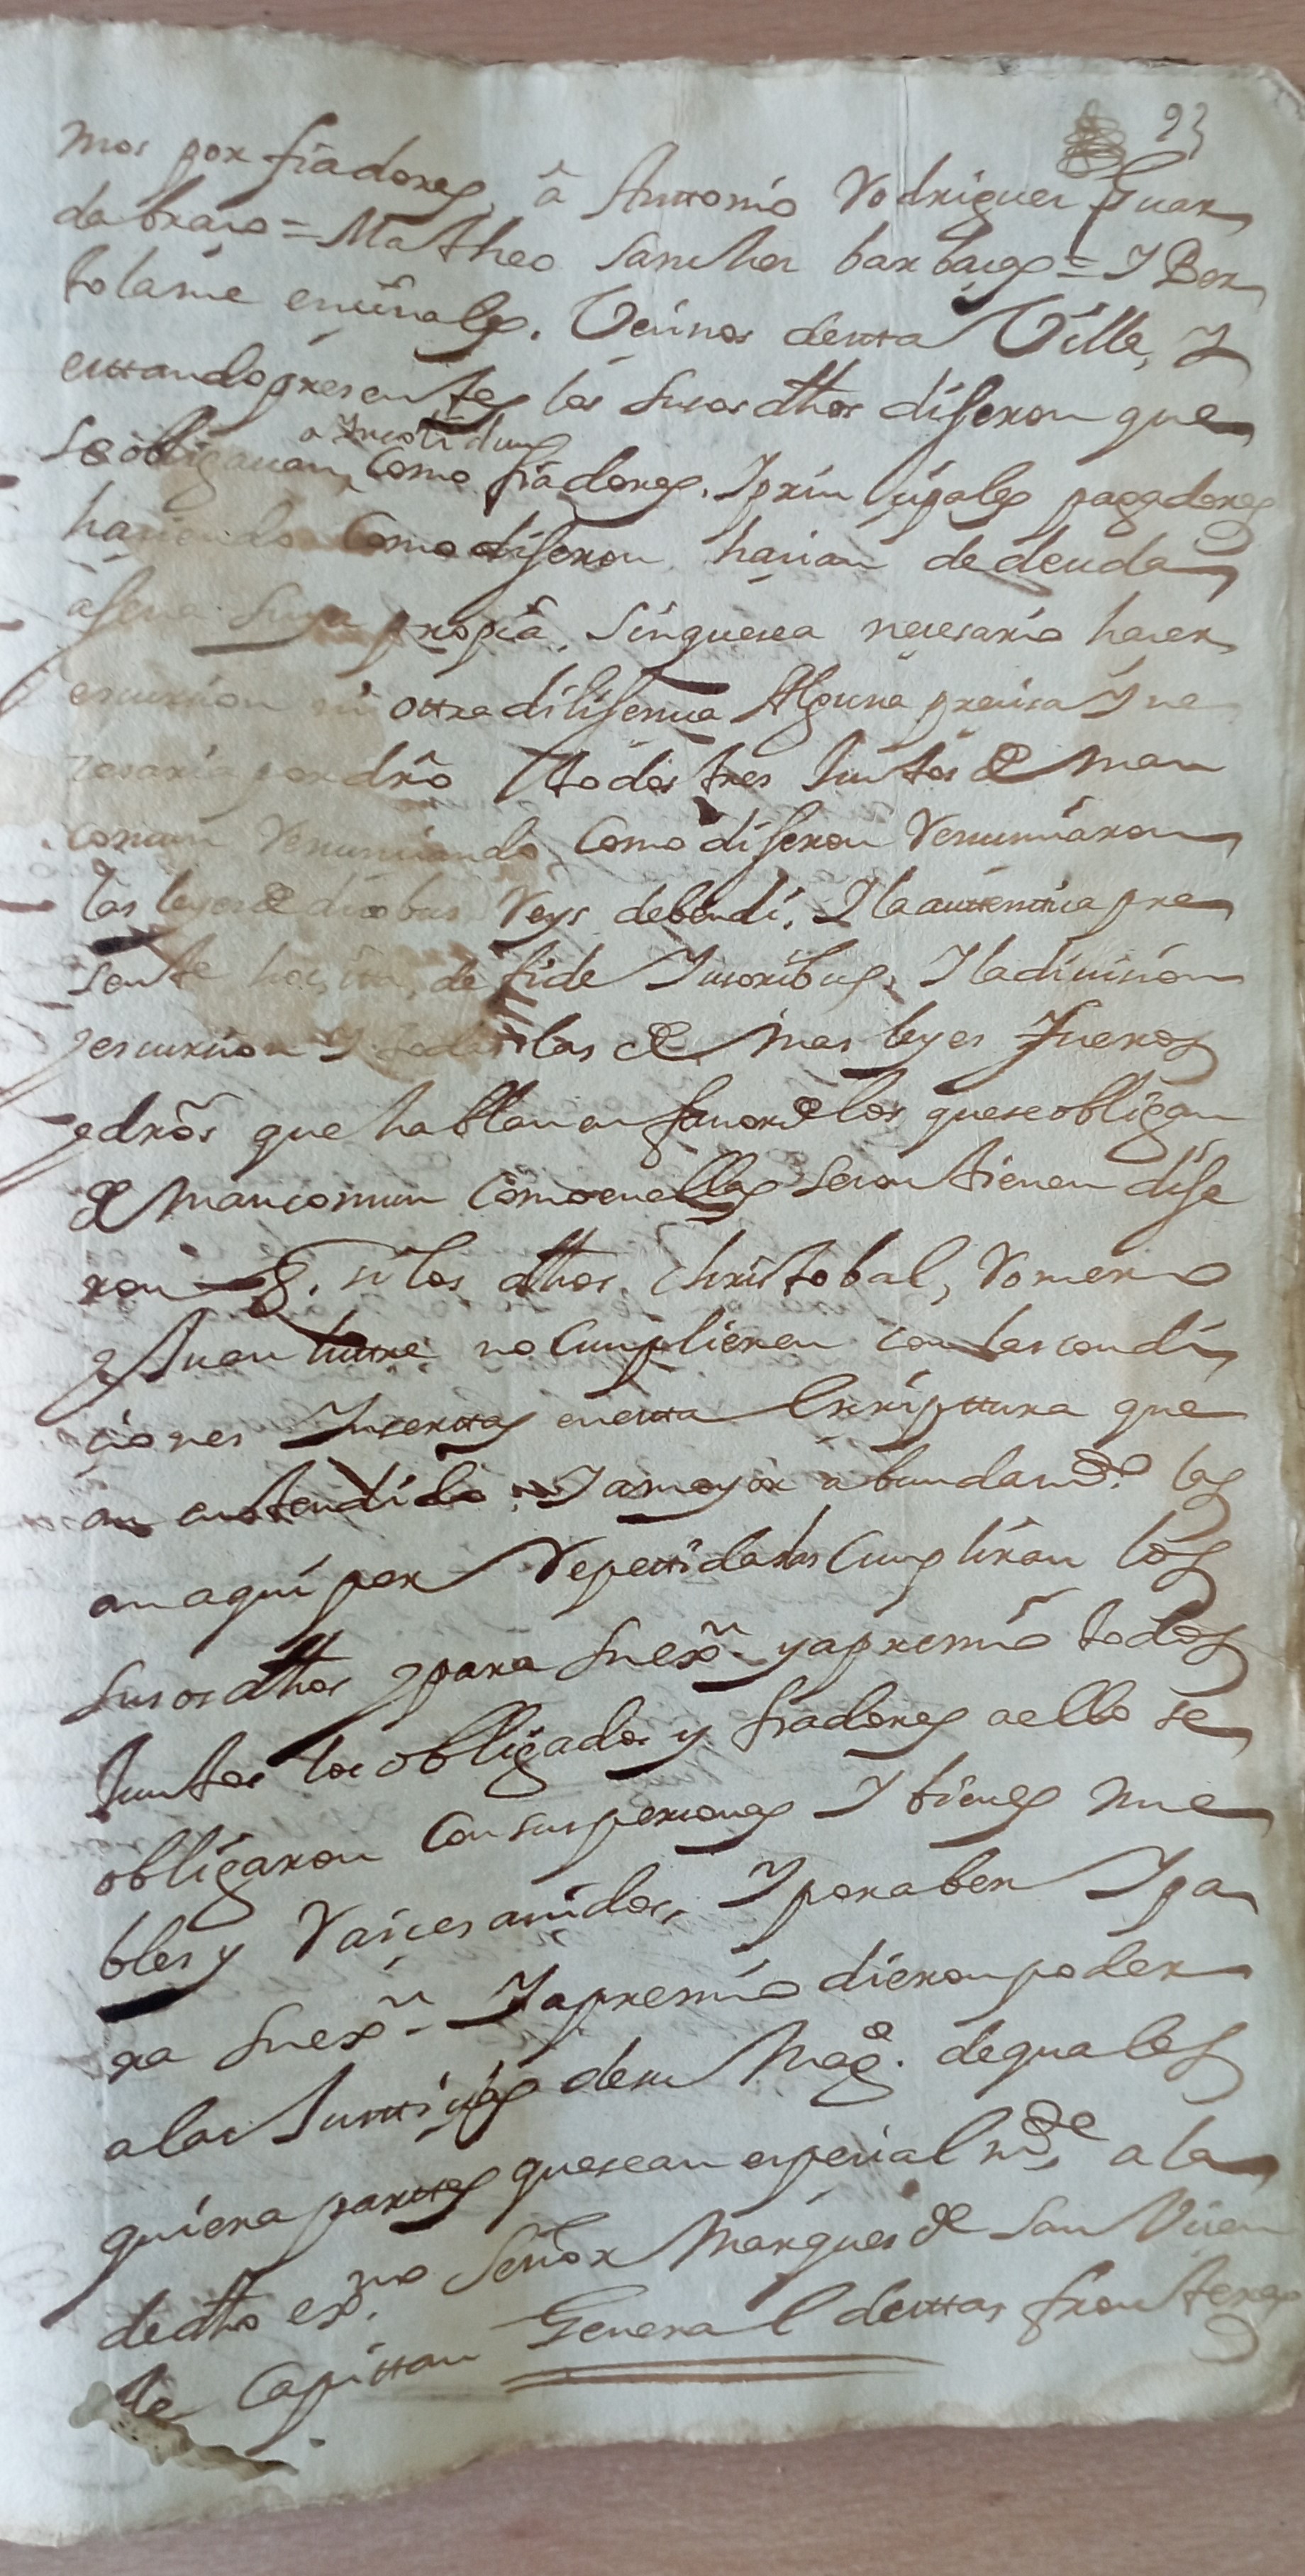 93
mos por fiadores, â Anttonio Rodriguez Guar
da brazo = Matheo Sanchez barbacas = I Bar
tolame encinales. Vecinos destta Villa, I
esttando presentes los susos dthos diseron que
se obligauan, como fiadores. I prin cipales pagadores
haciendo Como diseron hacian de deuda
ajena suya propia, sin que sea necesario hacer
escursion ni ottra dilisencia Alguna precisa I ne
zesaria por drõ I todos tres Juntos de man
comun Renunciando Como diseron Renunciaron
las leyes de duobus Reys debendi, I la auttenttica pre
sente hoc, itta, de fide Jusoribus, I la diuision
y escursion I todas las de mas leyes fueros
y drõs que hablan en fauor de los que se obligan
de mancomun Como en ellas se con tienen dise
ron q. si los dthos, Christobal, Romero
y Juan no Cumplieren con las condi
ciones Inserttas en estta Escripttura que
an enttendido I a mayor abundam.te las
an aqui por Repettidadas Cumpliran los
susos dthos y para su exõn y apremio todos
Juntos los obligados y fiadores a ello se
obligaron Con sus personas I bienes mue
bles y Raices auidos, I por aber I pa
ra su exõn I apremio dieron poder
a las Justticias de su Mag.e de quales
quiera parttes que sean especial m.te a la
de dtho ex.mo Señor Marques de San Vicen
te Capittan General desttas fronteras